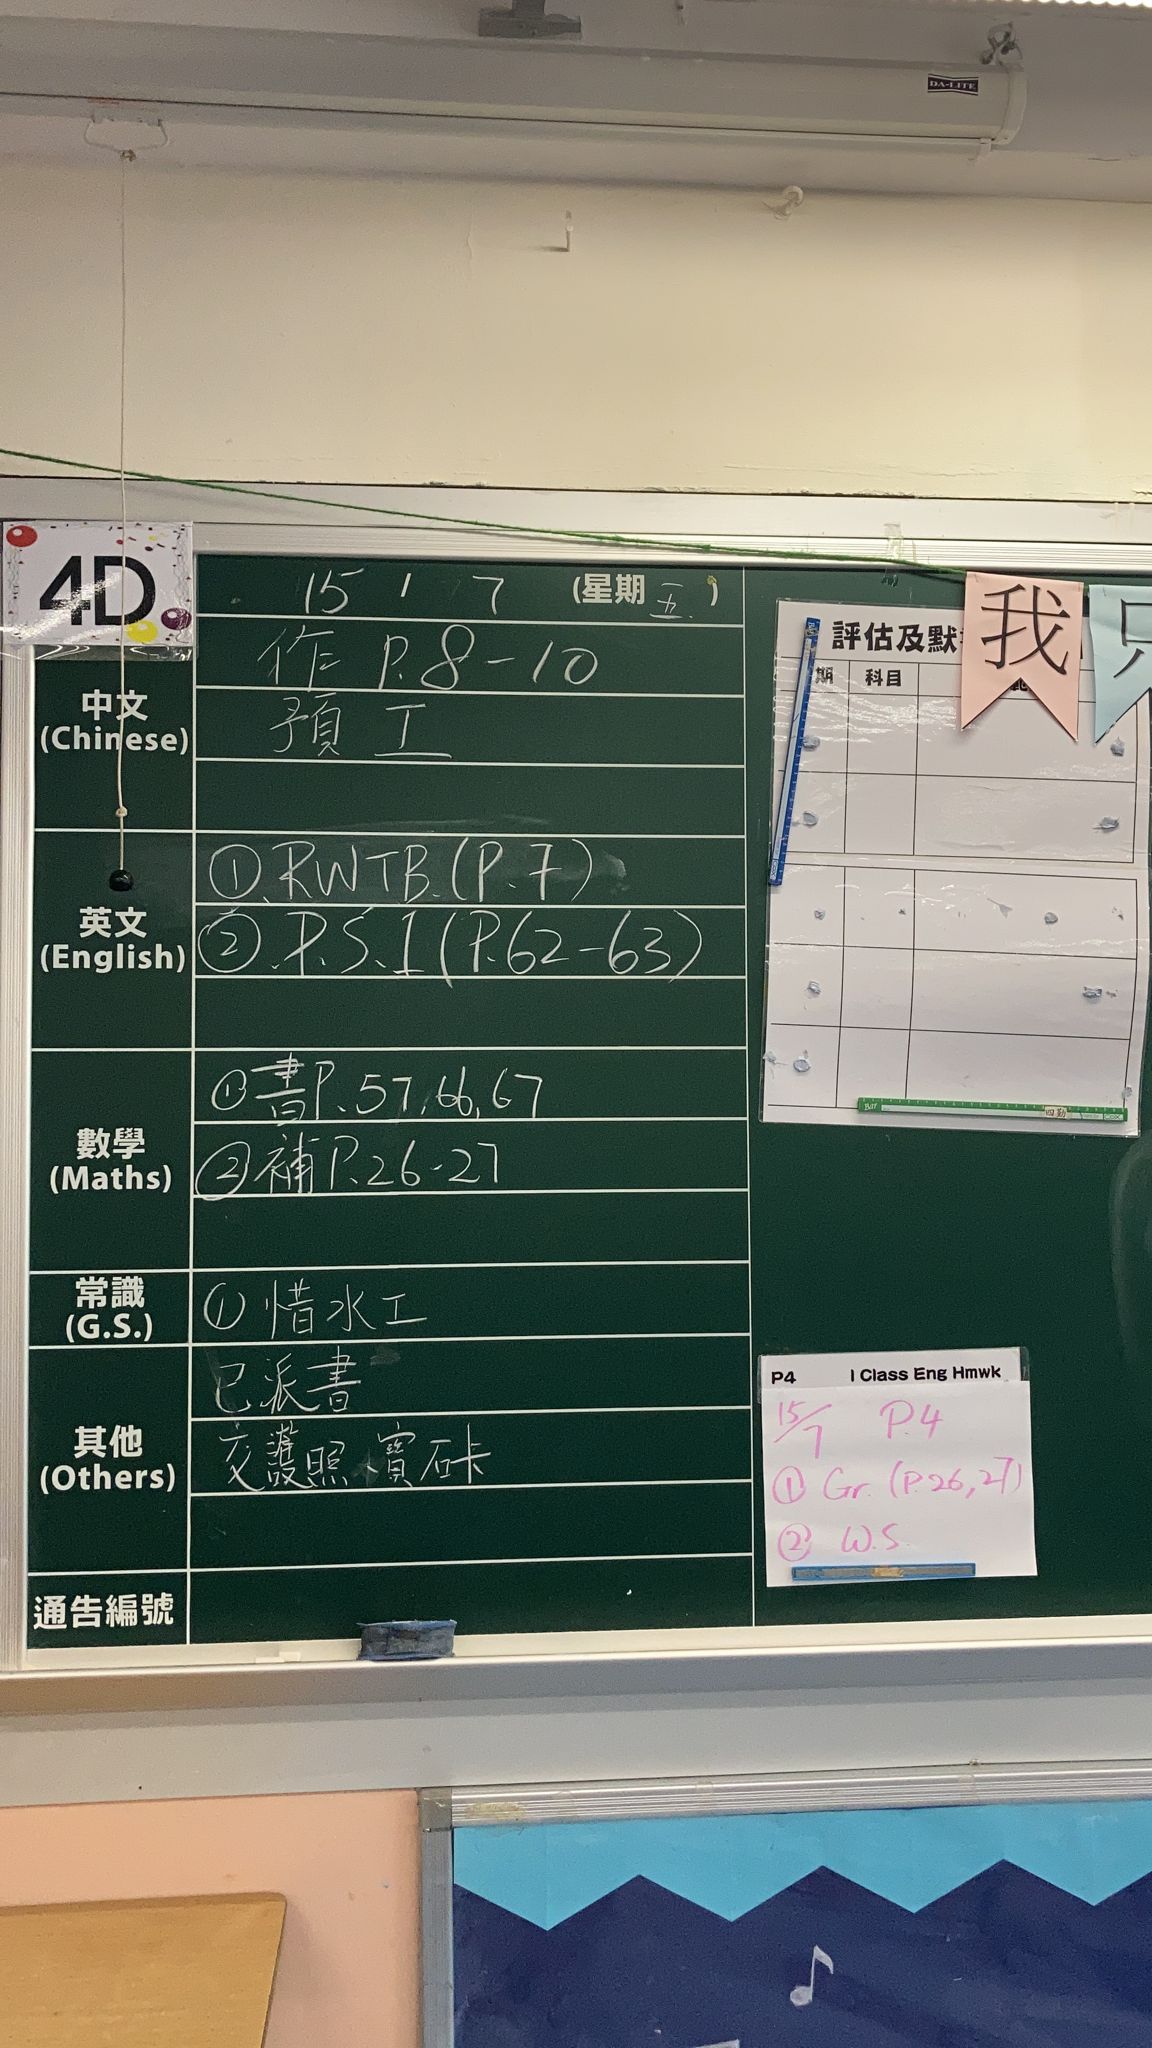 DA-LITE
4D
15 / 7 (星期五)
中文
(Chinese)
作 P.8-10
預工
英文
(English)
① RWTB.(P.7)
② P.S.I(P.62-63)
數學
(Maths)
① 書P.57,66,67
② 補P.26-27
常識
(G.S.)
① 惜水工
其他
(Others)
已派書
交護照、寶石卡
通告編號
評估及默
我
只
期 科目
四勤
P4 I Class Eng Hmwk
15/7 P.4
① Gr. (P.26,27)
② W.S.